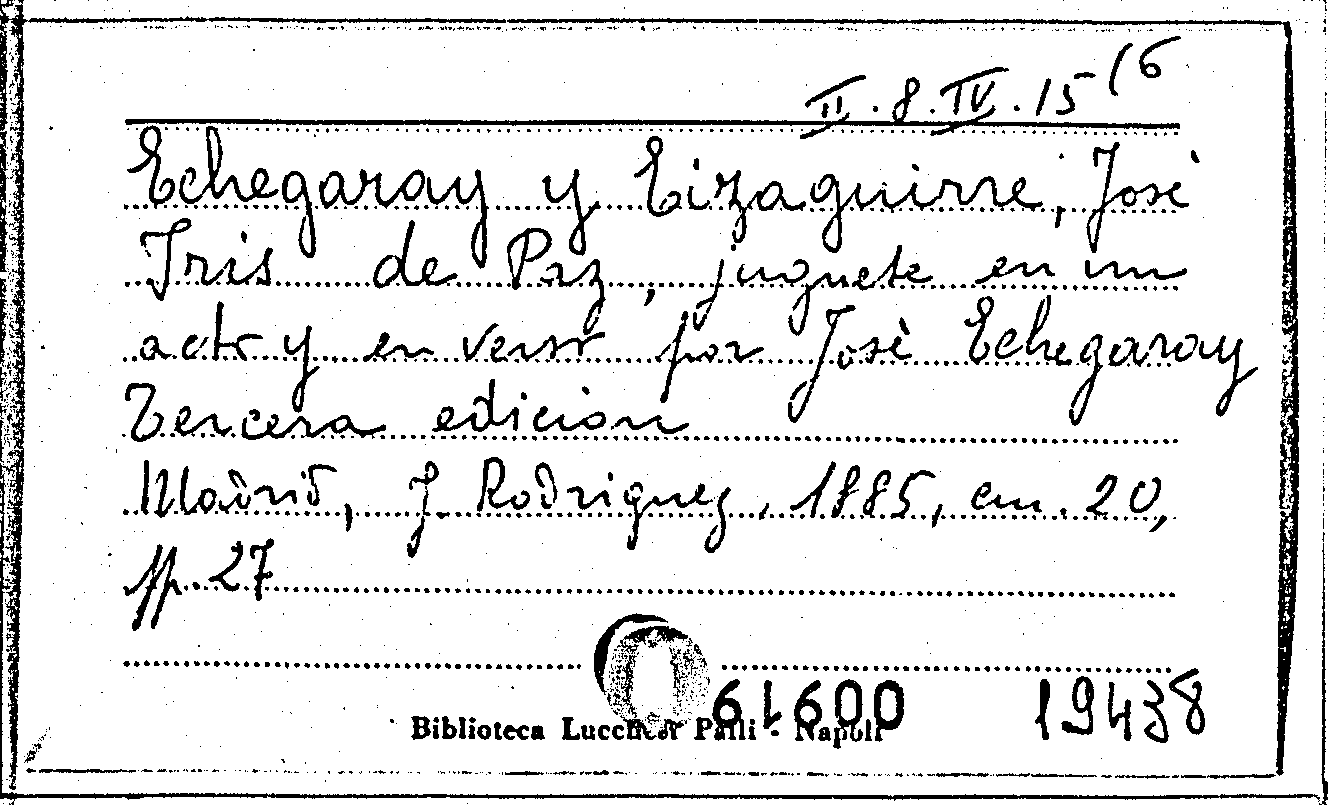 II.8.IV.15 (6
Echegaray y Eizaguirre, Josè
Iris de Paz, juguete en un
acto y en verso por Josè Echegaray
Tercera edicion
Madrid, J. Rodriguez, 1885, cm. 20,
pp. 27
61600 19438
Biblioteca Lucchesi Palli - Napoli